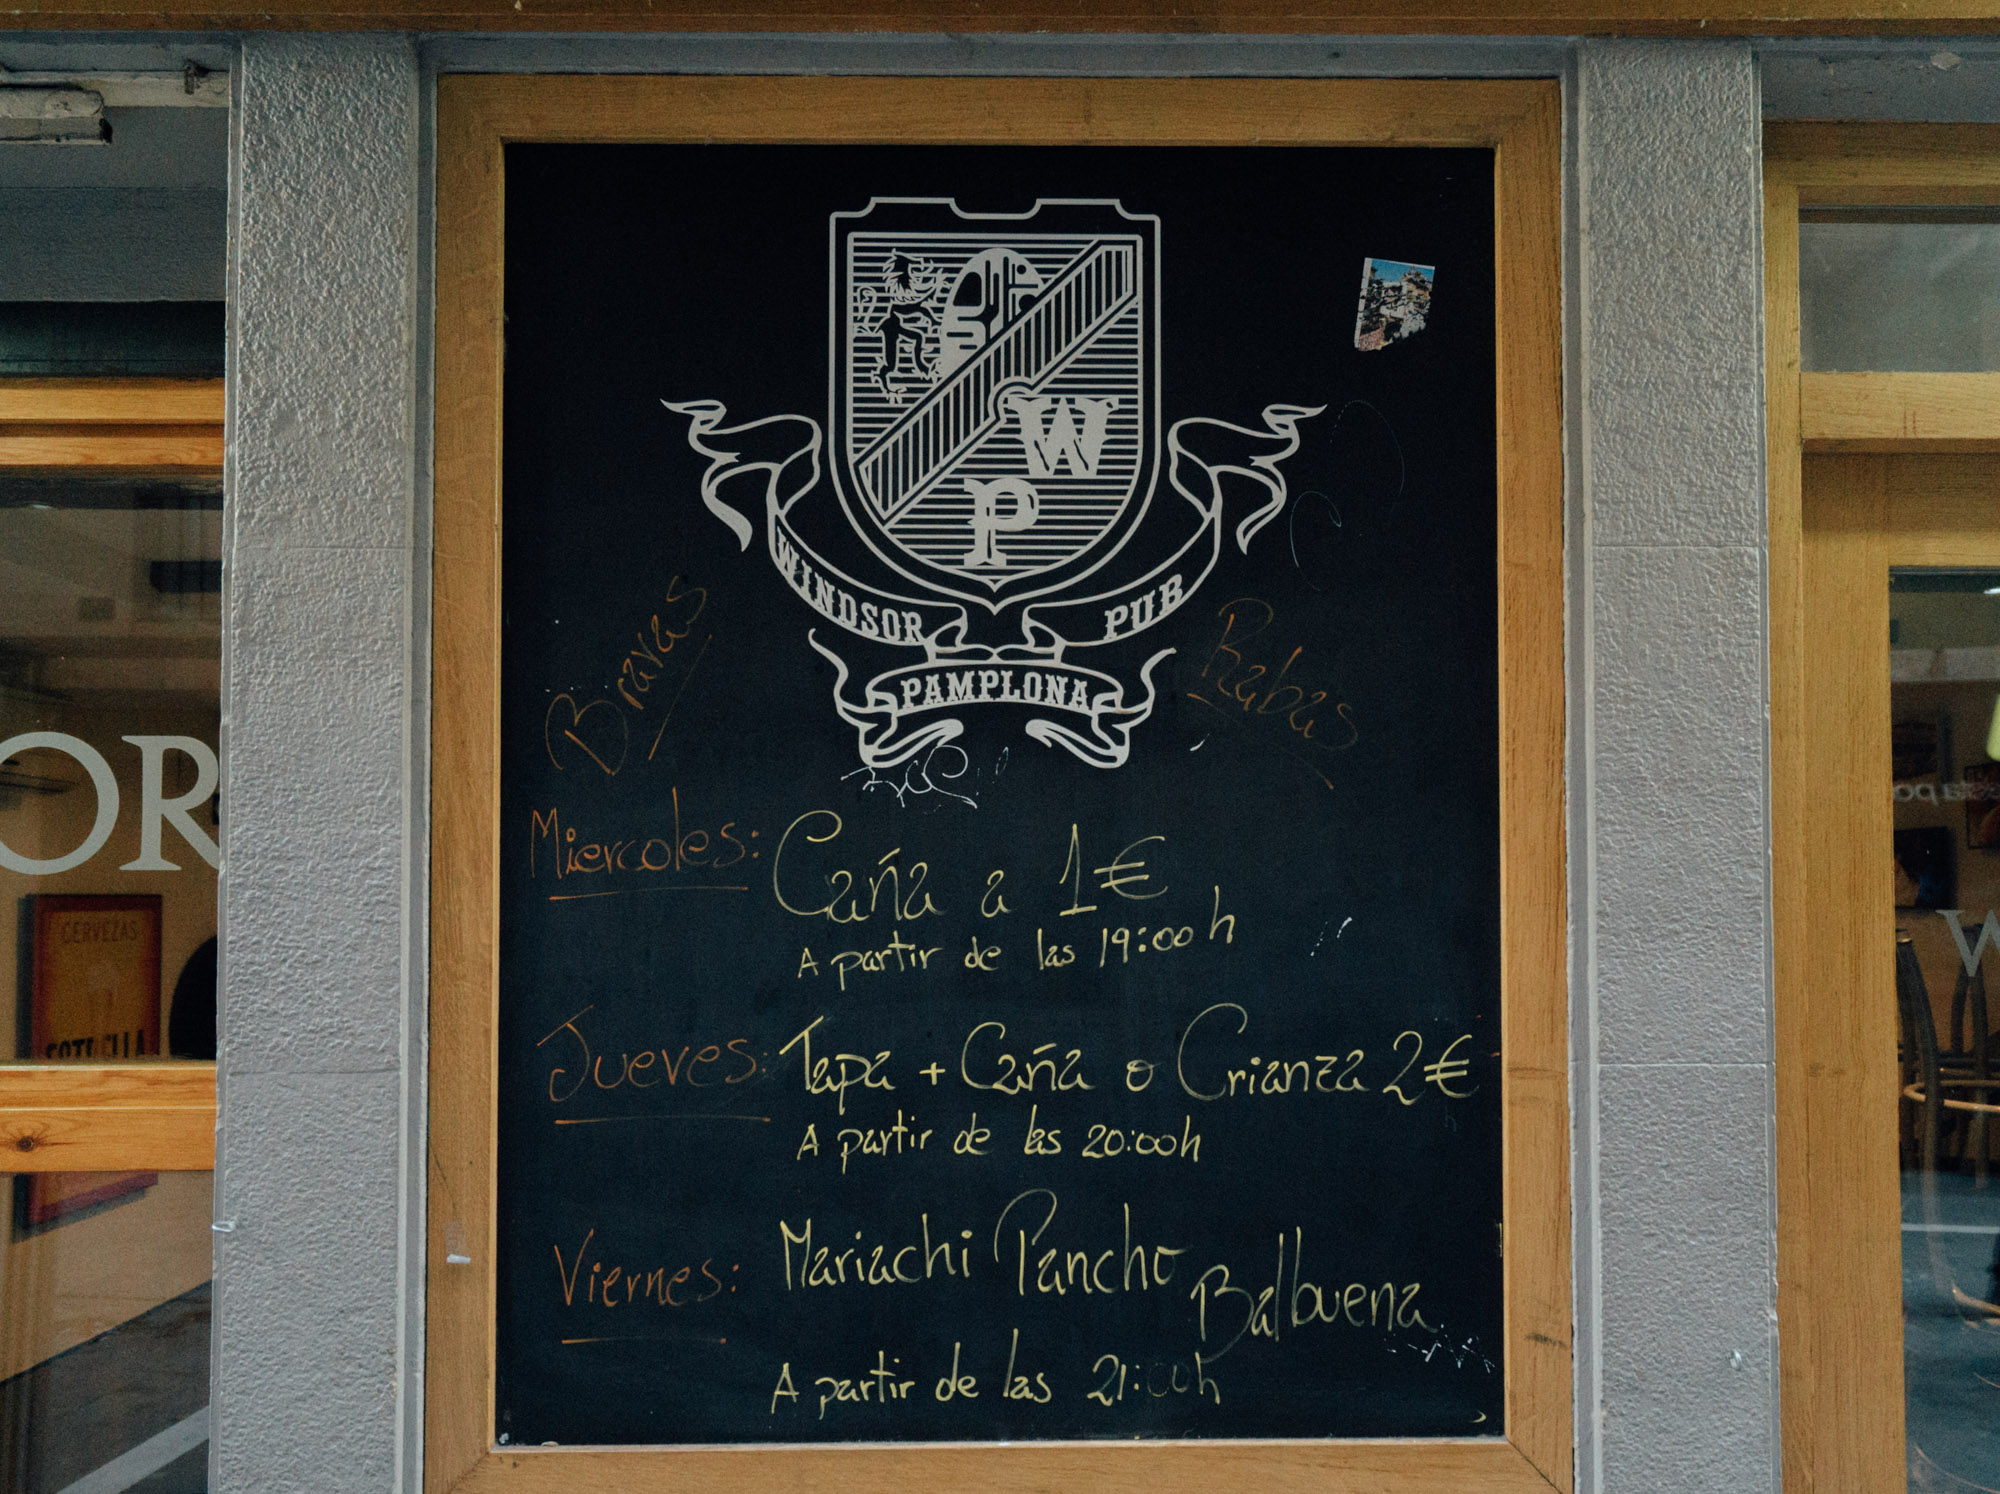 W
P
WINDSOR PUB
PAMPLONA
Bravas
Rabas
Miercoles: Caña a 1€
A partir de las 19:00 h
Jueves: Tapa + Caña o Crianza 2€
A partir de las 20:00h
Viernes: Mariachi Pancho Balbuena
A partir de las 21:00h
OR
CERVEZAS
W